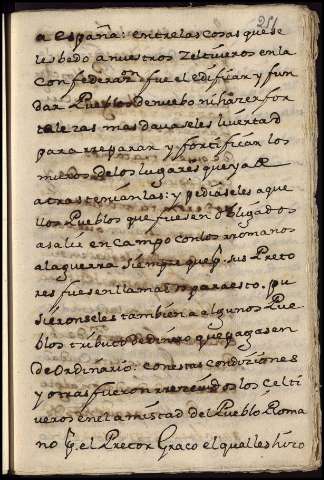 251
a españa: entre las cosas que se
les bedo a nuestros zeltiueros en la
confederaz.on fue el edificar y fun
dar Pueblos de nuebo ni hazer for
talezas mas dauaseles liuertad
para rreparar y fortificar los
muros de los lugares que ya de
atras tenian las: y pediaseles aque
llos Pueblos que fuesen obligados
a salir en campo con los rromanos
a la guerra siempre que p.r sus Preto
res fuesen llamados para esto. pu
sieronseles tambien a algunos Pue
blos tributo de dinero que pagasen
de ordinario: con estas condiziones
y otras fueron rreceuidos los Celti
ueros en el amistad del Pueblo Roma
no p.r el Pretor Graco el qual les hizo